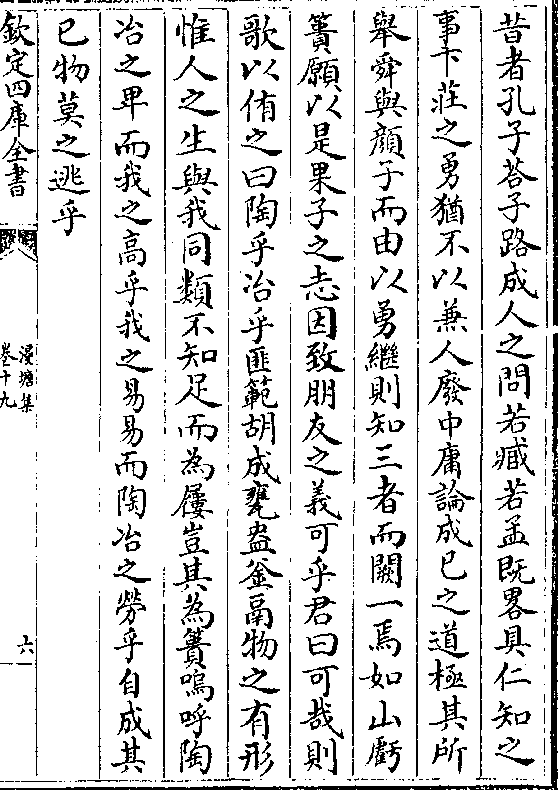 昔者孔子荅子路成人之問若臧若孟既畧具仁知之
事卞莊之勇猶不以兼人廢中庸論成已之道極其所
舉舜與顔子而由以勇繼則知三者而闕一焉如山虧
簣願以是果子之志因致朋友之義可乎君曰可哉則
歌以侑之曰陶乎冶乎匪範胡成甕盎釜鬲物之有形
惟人之生與我同類不知足而為屨豈其為簣嗚呼陶
冶之卑而我之高乎我之易易而陶冶之勞乎自成其
已物莫之逃乎
欽定四庫全書
漫塘集
卷十九
六